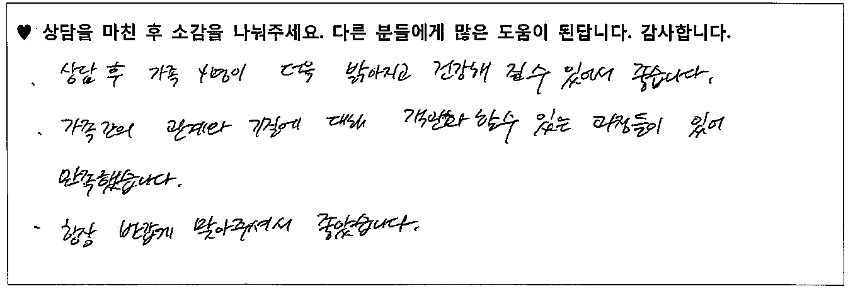 ♥ 상담을 마친 후 소감을 나눠주세요. 다른 분들에게 많은 도움이 된답니다. 감사합니다.
. 상담 후 가족 4명이 더욱 밝아지고 건강해 질 수 있어서 좋습니다.
. 가족간의 관계와 기질에 대해 객관화 할 수 있는 과정들이 있어
만족했습니다.
- 항상 반갑게 맞아주셔서 좋았습니다.